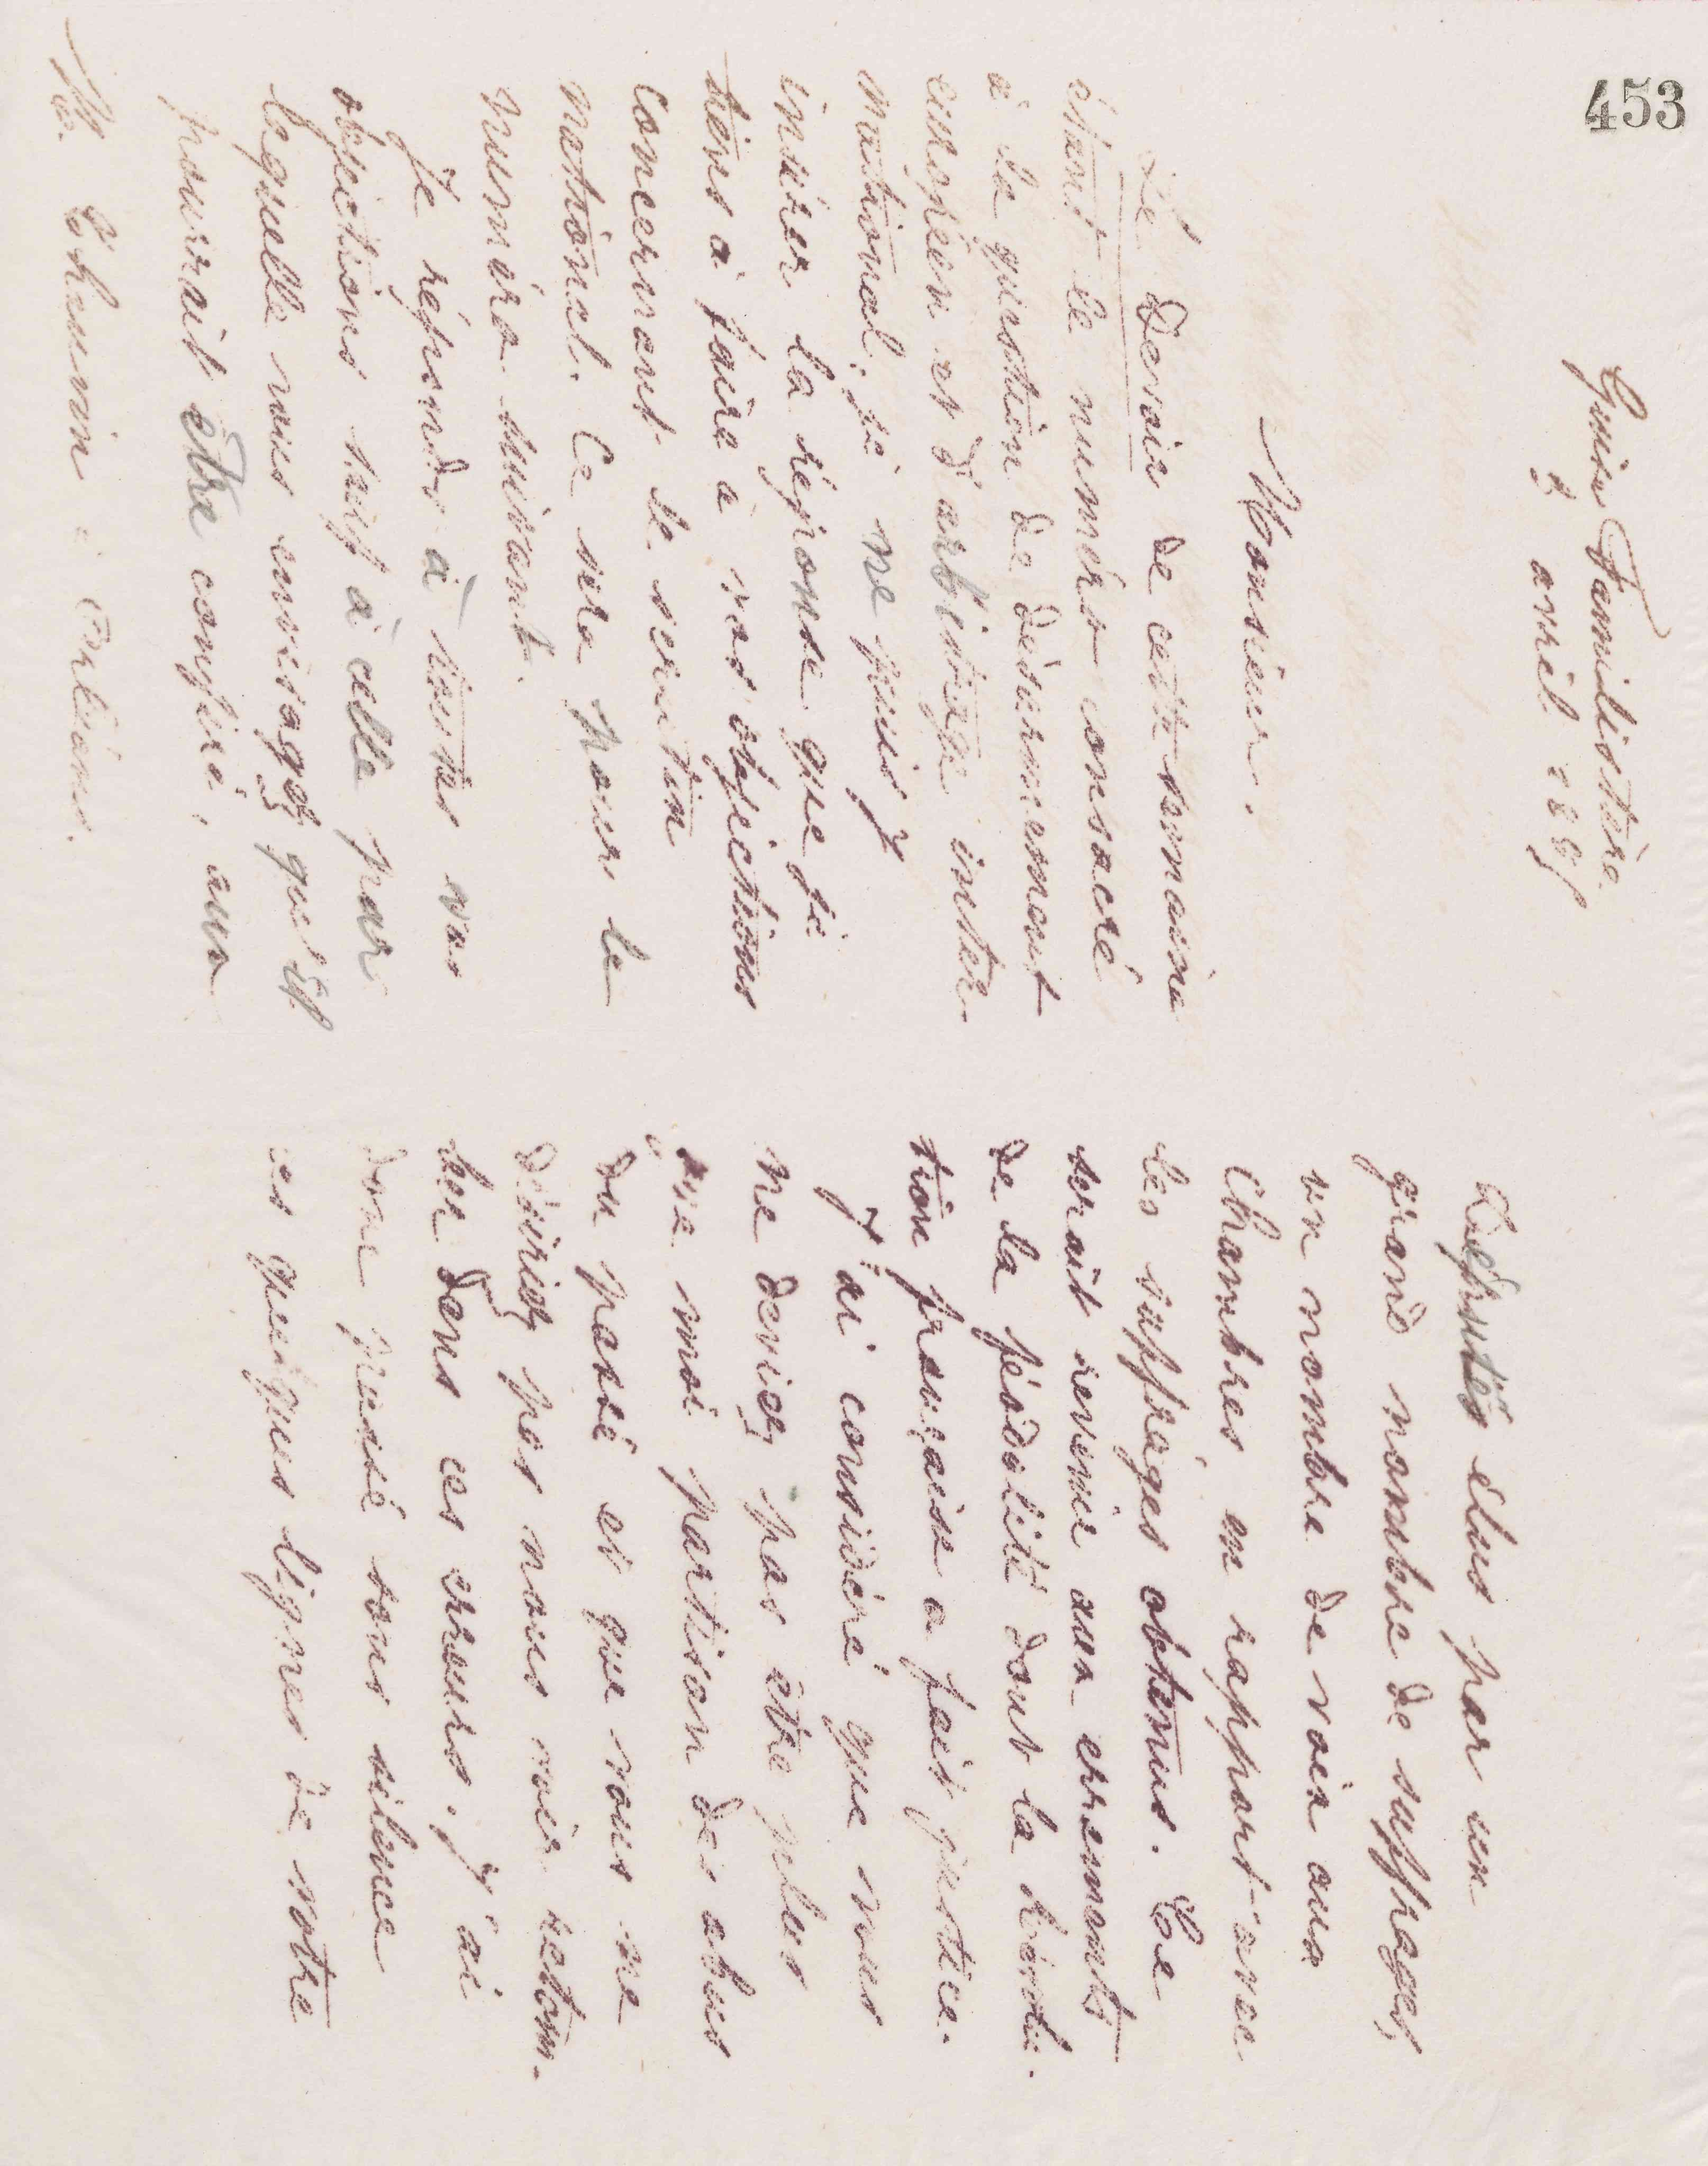 453
Guise Familistère
2 avril 1885
Monsieur,
Le Devoir de cette semaine
étant le numéro consacré
à la question de désarmement
européen et d'arbitrage inter-
national, je ne puis y
insérer la réponse que je
tiens à faire à vos objections
concernant le scrutin
national. Ce sera pour le
numéro suivant.
Je réponds à toutes vos
objections sauf à celle par
laquelle vous envisagez qu'il
pourrait être conféré, aux
M. Chauvin à Orléans.
Députés élus par un
grand nombre de suffrages,
un nombre de voix aux
Chambres en rapport avec
les suffrages obtenus. Ce
serait revenir aux errements
de la féodalité dont la Révolu-
tion française a fait justice.
J'ai considéré que vous
ne deviez pas être plus
que moi partisan des abus
du passé et que vous ne
désiriez pas nous voir retom-
ber dans ces erreurs. J'ai
donc passé sous silence
ces quelques lignes de votre